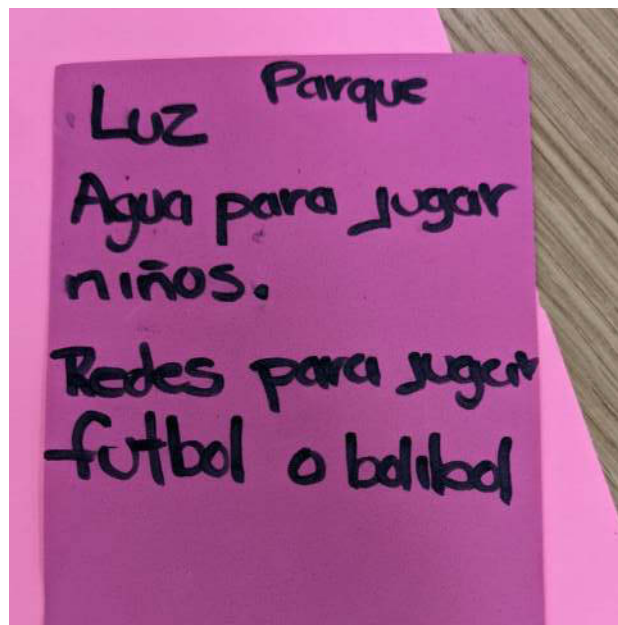 Parque
Luz
Agua para jugar
niños.
Redes para jugar
futbol o bolibol